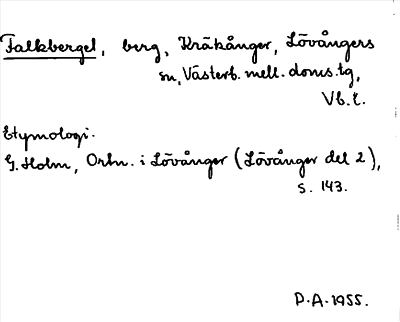 Falkberget, berg, Kråkånger, Lövångers
sn, Västerb. mell. doms.tg,
Vb. l.
Etymologi.
G. Holm, Ortn. i Lövånger (Lövånger del 2),
s. 143.
P.A. 1955.